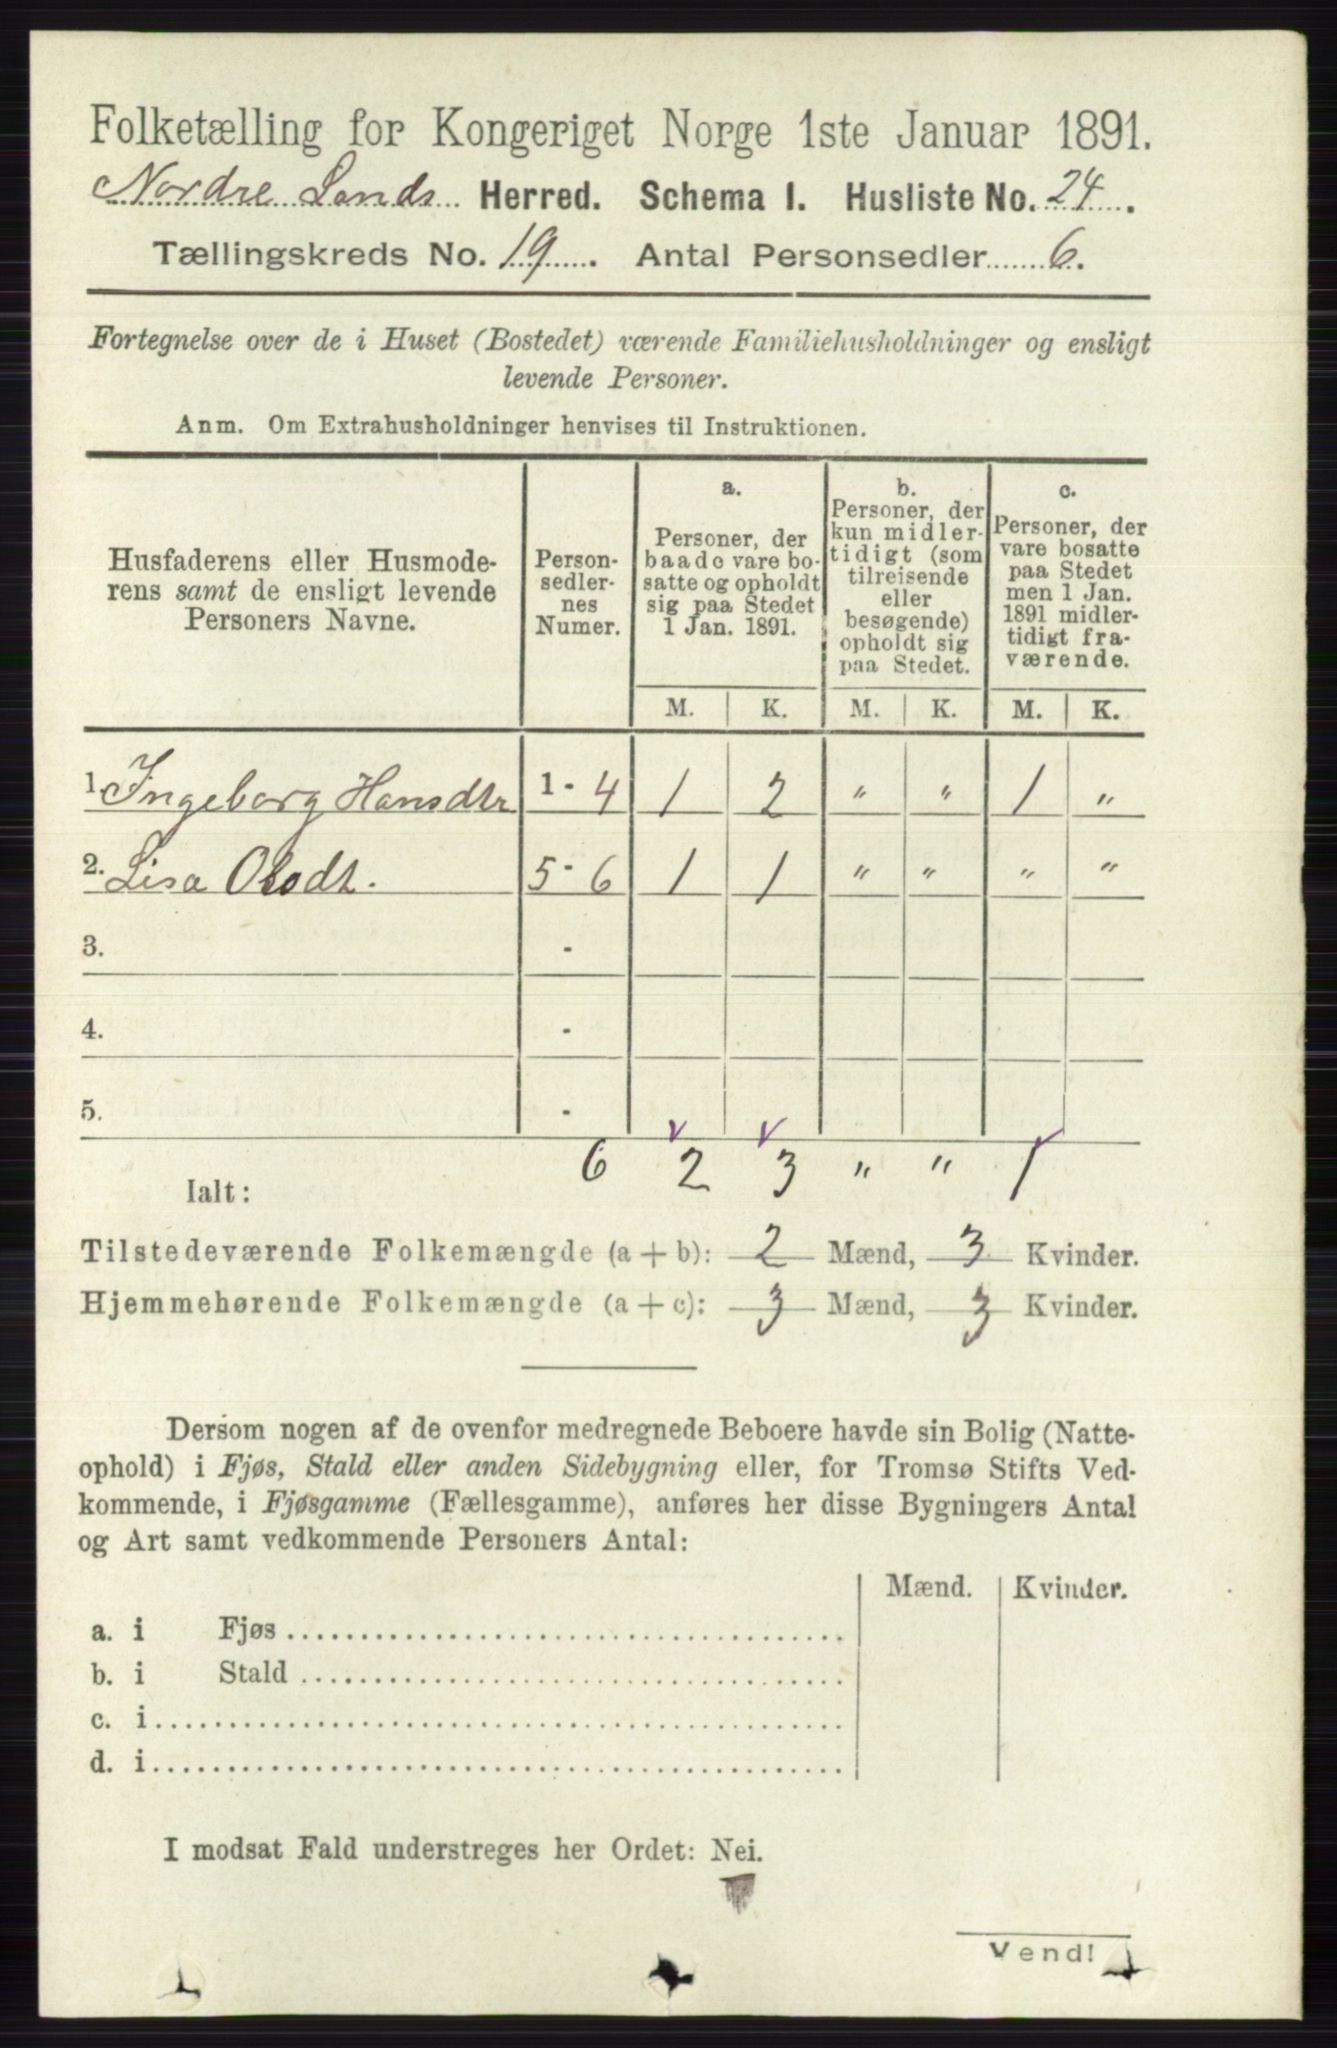 Folketælling for Kongeriget Norge 1ste Januar 1891.
Nordre Lands Herred. Schema I. Husliste No. 24.
Tællingskreds No. 19. Antal Personsedler 6.
Fortegnelse over de i Huset (Bostedet) værende Familiehusholdninger og ensligt
levende Personer.
Anm. Om Extrahusholdninger henvises til Instruktionen.
Husfaderens eller Husmode-
rens samt de ensligt levende
Personers Navne.
Person-
sedler-
nes
Numer.
a.
Personer, der
baade vare bo-
satte og opholdt
sig paa Stedet
1 Jan. 1891.
b.
Personer, der
kun midler-
tidigt (som
tilreisende
eller
besøgende)
opholdt sig
paa Stedet.
c.
Personer, der
vare bosatte
paa Stedet
men 1 Jan.
1891 midler-
tidigt fra-
værende.
M. K. M. K. M. K.
1. Ingeborg Hansdtr 1 - 4 1 2 " " 1 "
2. Lisa Olsdt. 5 - 6 1 1 " " " "
3. -
4. -
5. -
6 2 3 " " 1
Ialt:
Tilstedeværende Folkemængde (a + b): 2 Mænd, 3 Kvinder.
Hjemmehørende Folkemængde (a + c): 3 Mænd, 3 Kvinder.
Dersom nogen af de ovenfor medregnede Beboere havde sin Bolig (Natte-
ophold) i Fjøs, Stald eller anden Sidebygning eller, for Tromsø Stifts Ved-
kommende, i Fjøsgamme (Fællesgamme), anføres her disse Bygningers Antal
og Art samt vedkommende Personers Antal:
Mænd. Kvinder.
a. i Fjøs
b. i Stald
c. i
d. i
I modsat Fald understreges her Ordet: Nei.
Vend!